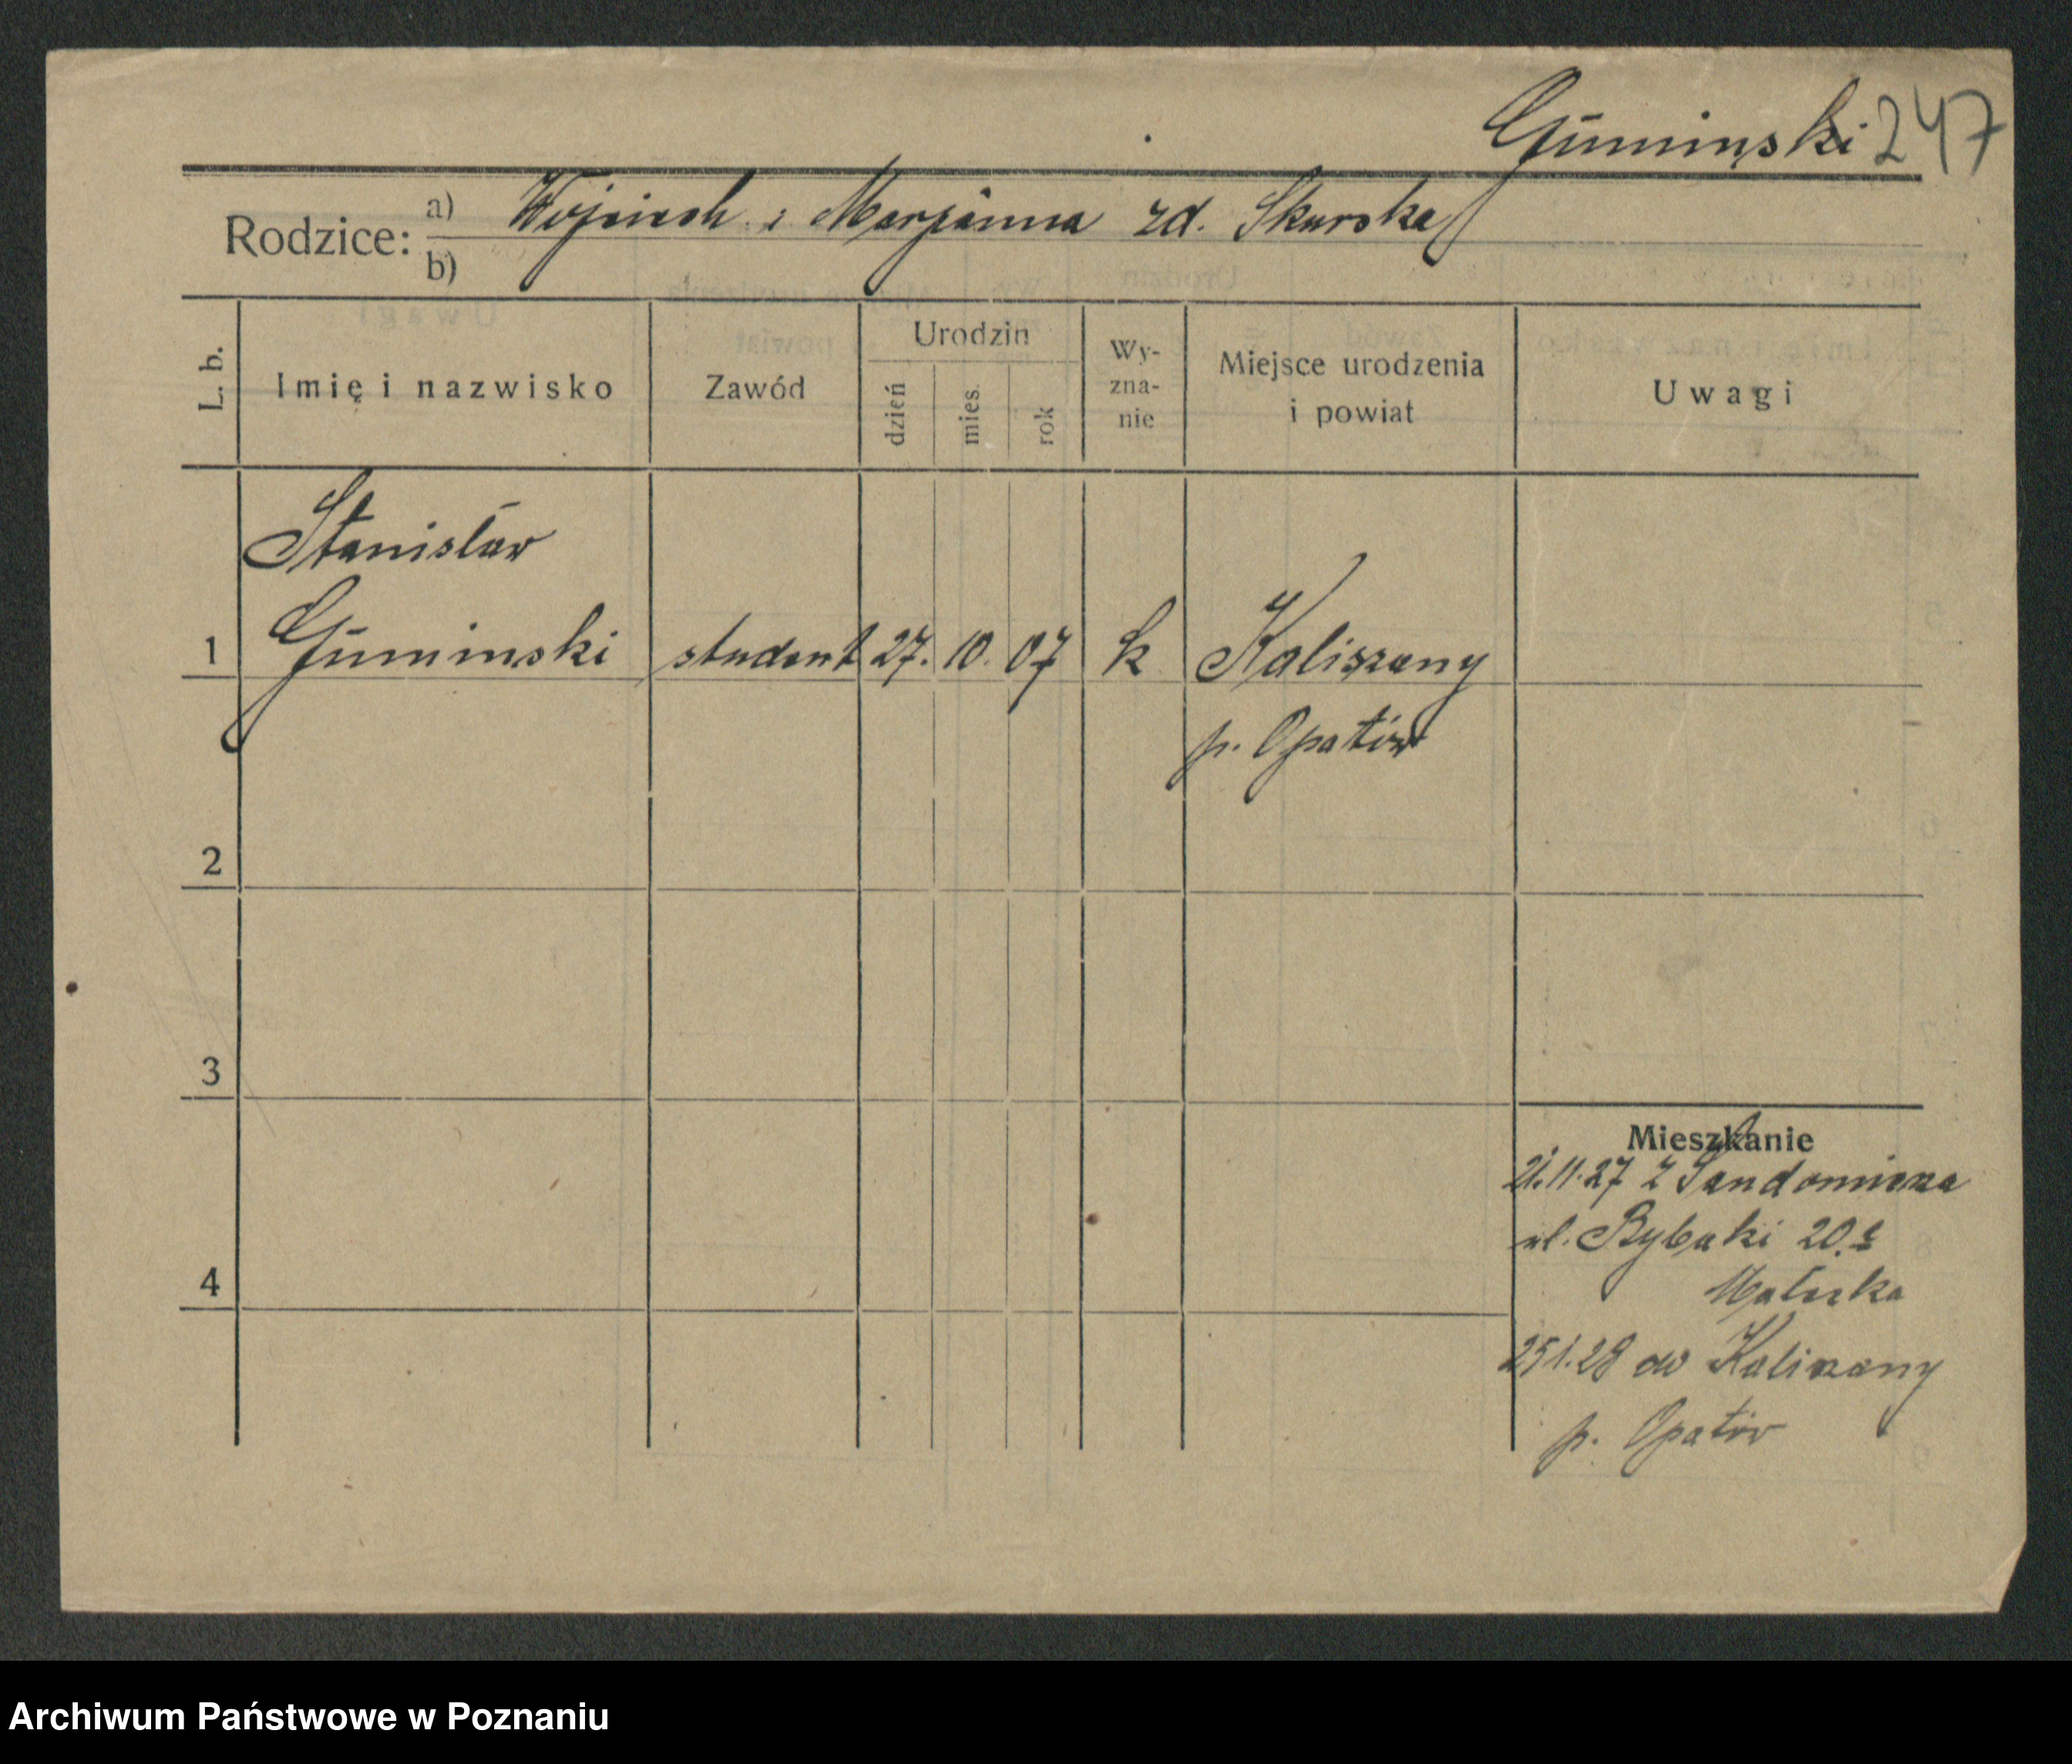 Guminski 247
Rodzice: a) Wojciech i Marjanna zd. Skurska
b)
L. b. Imię i nazwisko Zawód Urodzin dzień mies. rok Wy-zna-nie Miejsce urodzenia i powiat Uwagi
Stanisław
1 Guminski student 27. 10. 07 k Kaliszany
p. Opatów
2
3
Mieszkanie
21.11.27 z Sandomierza
ul. Rybaki 20.
4
Małecka
25 1.28 do Kaliszany
p. Opatów
Archiwum Państwowe w Poznaniu